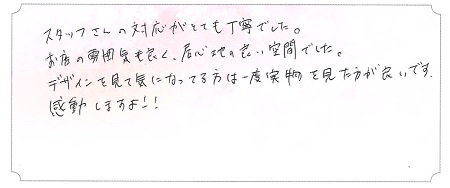 スタッフさんの対応がとても丁寧でした。
お店の雰囲気も良く、居心地の良い空間でした。
デザインを見て気になってる方は一度実物を見た方が良いです。
感動しますよ!!